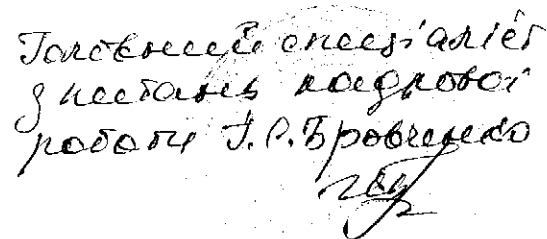 Головний спеціаліст
з питань кадрової
роботи Г.С.Бровченко